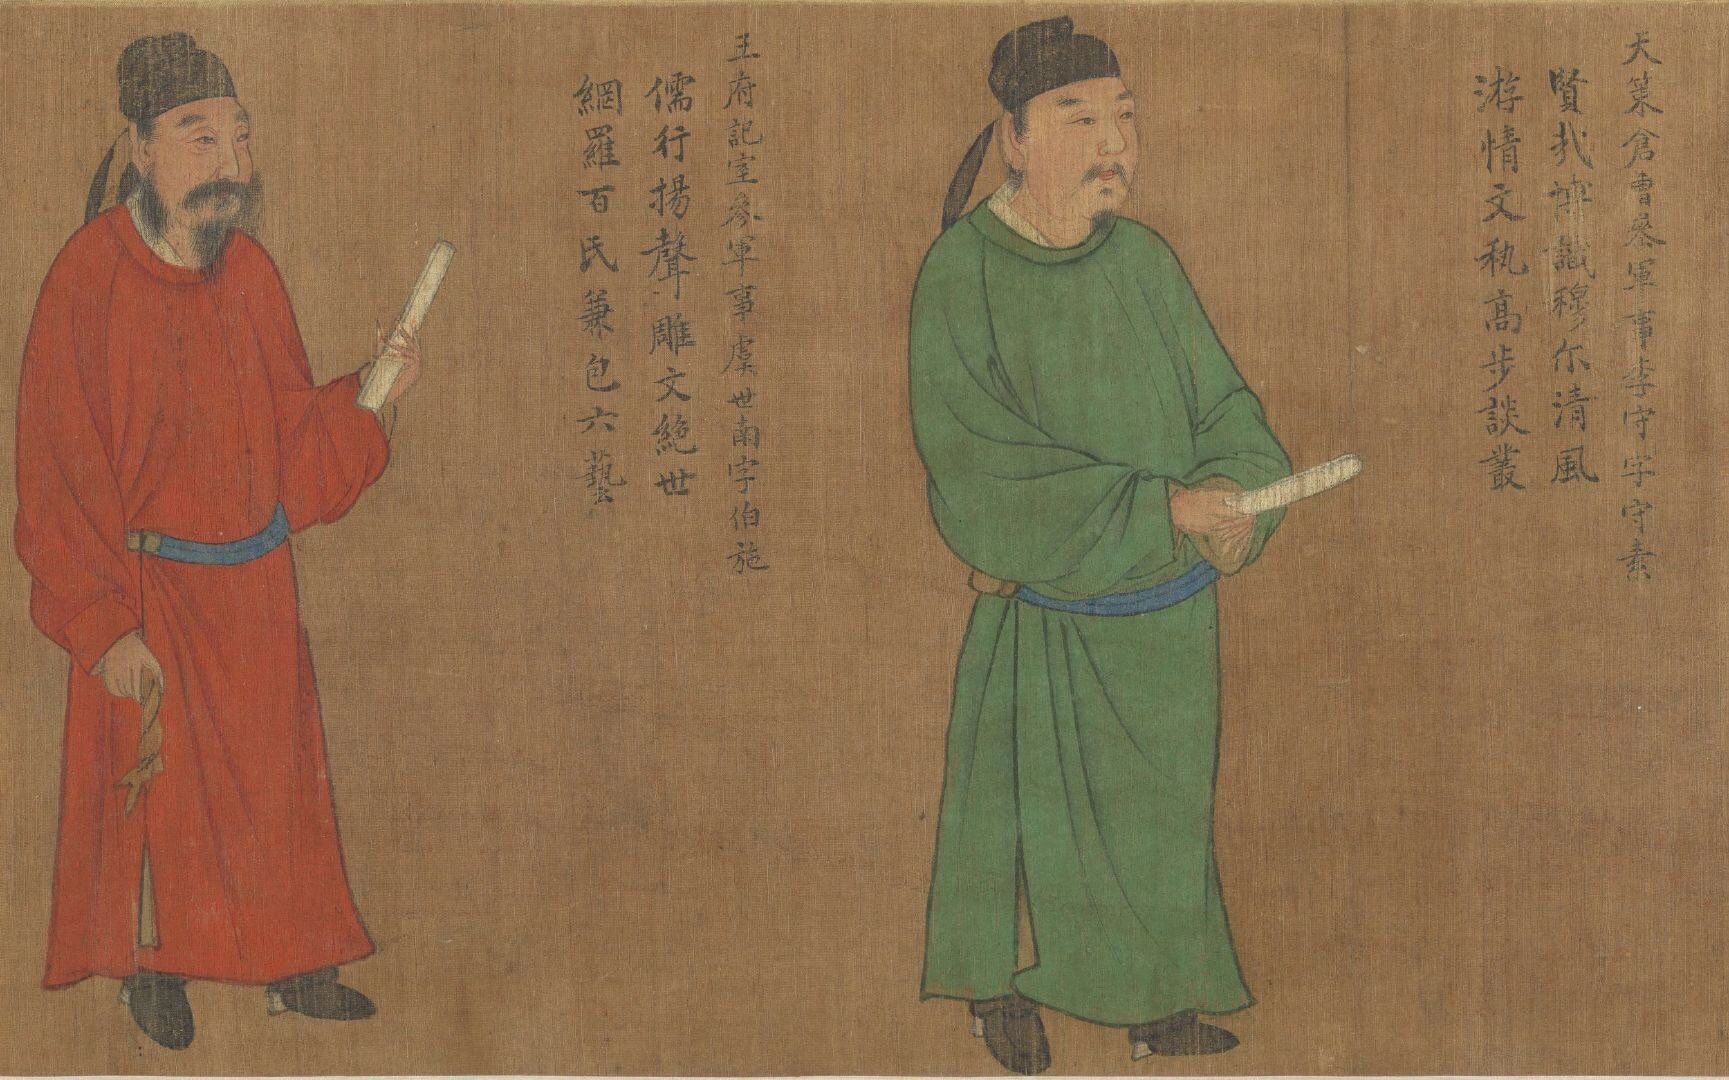 天策倉曹參軍事李守字守素
賢哉博識穆尒清風
游情文執高步談叢
王府記室參軍事虞世南字伯施
儒行揚聲雕文絶世
網羅百氏兼包六藝